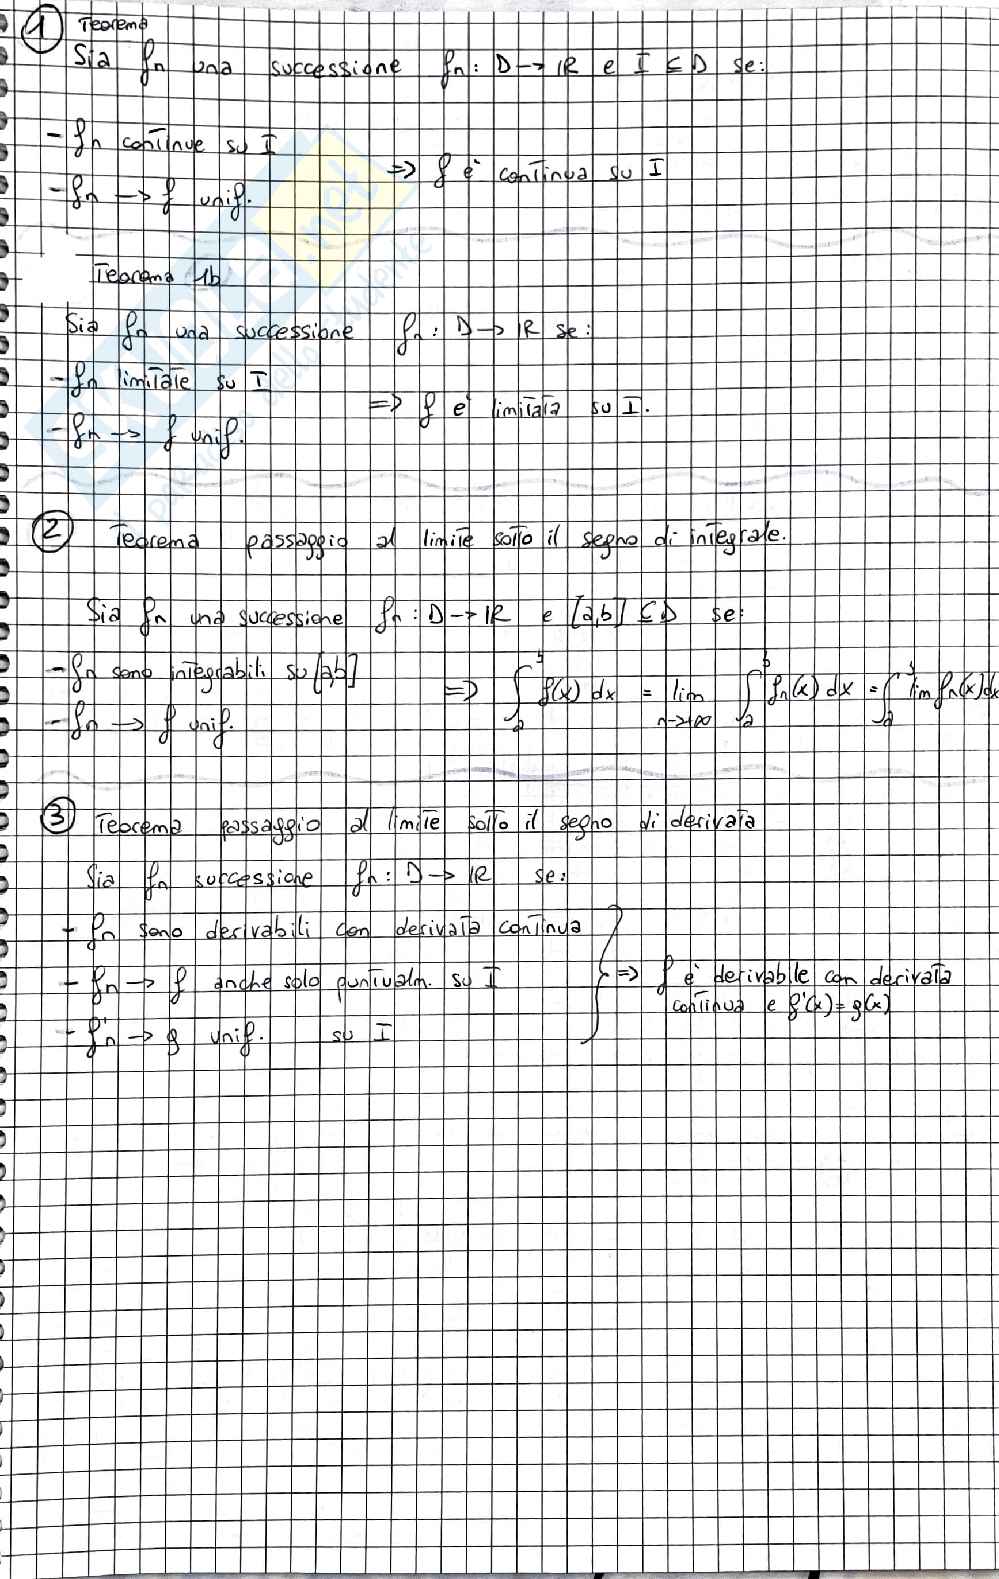 1 Teorema
Sia fn una successione fn: D → ℝ e I ⊆ D se:
- fn continue su I
⇒ f è continua su I
- fn → f unif.
Teorema 1b
Sia fn una successione fn: D → ℝ se:
- fn limitate su I
⇒ f è limitata su I.
- fn → f unif.
2 Teorema passaggio al limite sotto il segno di integrale.
Sia fn una successione fn: D → ℝ e [a,b] ⊆ D se:
- fn sono integrabili su [a,b]
⇒ ∫_a^b f(x) dx = lim_{n→+∞} ∫_a^b fn(x) dx = ∫_a^b lim fn(x) dx
- fn → f unif.
3 Teorema passaggio al limite sotto il segno di derivata
Sia fn successione fn: D → ℝ se:
- fn sono derivabili con derivata continua
- fn → f anche solo puntualm. su I
⇒ f è derivabile con derivata
continua e f'(x) = g(x)
- f'n → g unif. su I